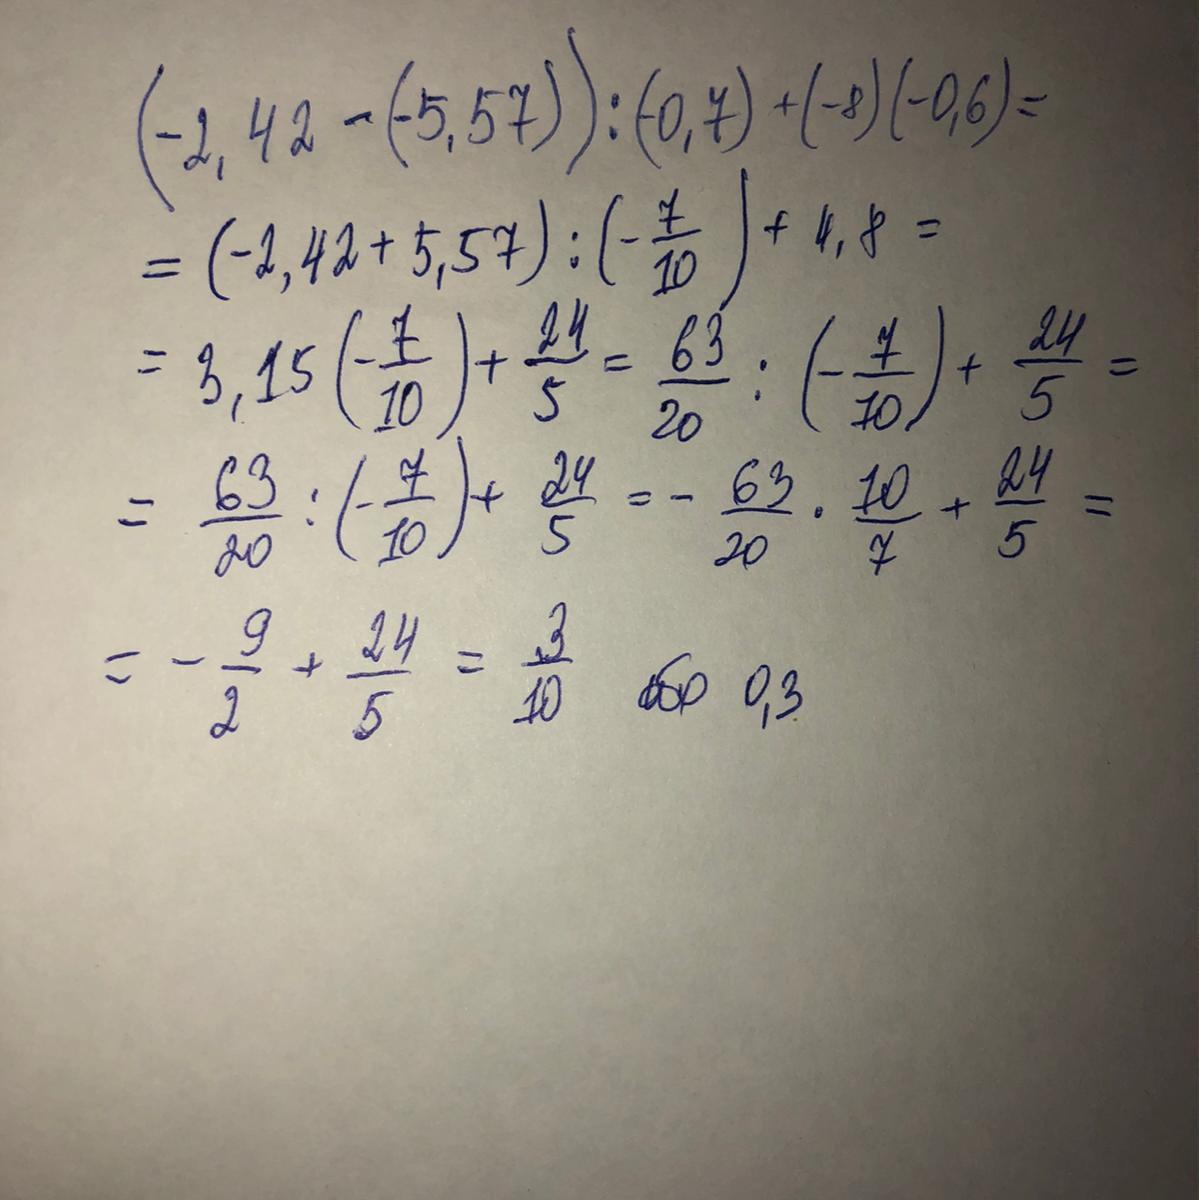 (-2,42 - (-5,57)) : (-0,7) + (-8)(-0,6) =
= (-2,42 + 5,57) : (-7/10) + 4,8 =
= 3,15 (-7/10) + 24/5 = 63/20 : (-7/10) + 24/5 =
= 63/20 : (-7/10) + 24/5 = - 63/20 · 10/7 + 24/5 =
= - 9/2 + 24/5 = 3/10 або 0,3